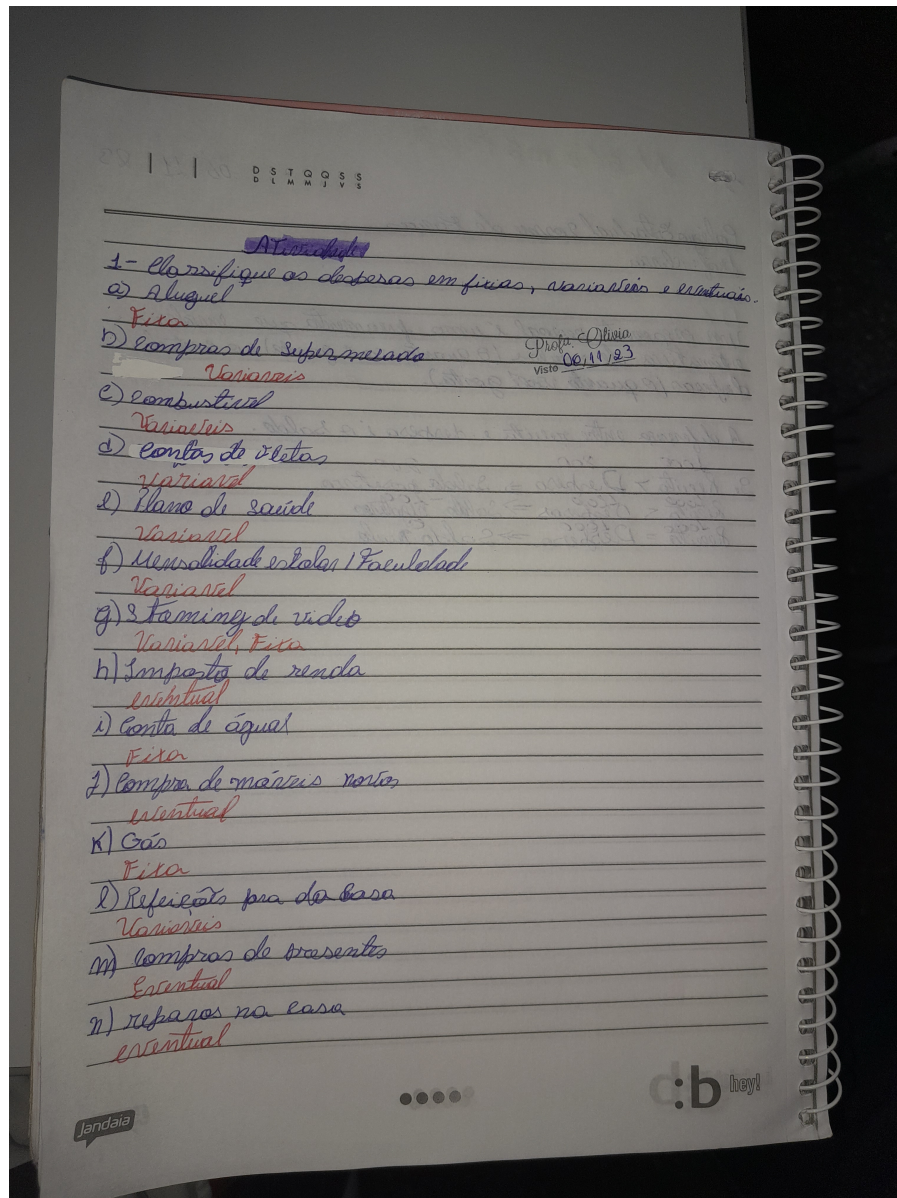 D S T Q Q S S
D L M M J V S
Atividade
1- Classifique as despesas em fixas, variavéis e eventuais.
a) Aluguel
Fixa
b) compras de supermercado
Profa. Olivia
Variaveis
Visto 06,11,23
c) combustível
Variaveis
d) contas de
variavel
e) Plano de saúde
Variavel
f) Mensalidade escolar / Faculdade
Variavel
g) Staming de video
Variavel, Fixa
h) Imposto de renda
eventual
i) Conta de água
Fixa
J) Compra de móveis novos
eventual
K) Gás
Fixa
l) Refeições da casa
Variavéis
m) compras de presentes
Eventual
n) reparos na casa
eventual
:b hey!
Jandaia